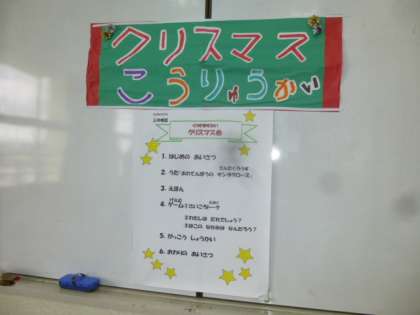 クリスマス
こうりゅうかい
クリスマス会
1. はじめの あいさつ
2. うた「あわてんぼうの サンタクロース」
3. えほん
4. ゲーム
①わたしは だれでしょう?
②はこの なかみは なんだろう?
5. がっこう しょうかい
6. おわりの あいさつ